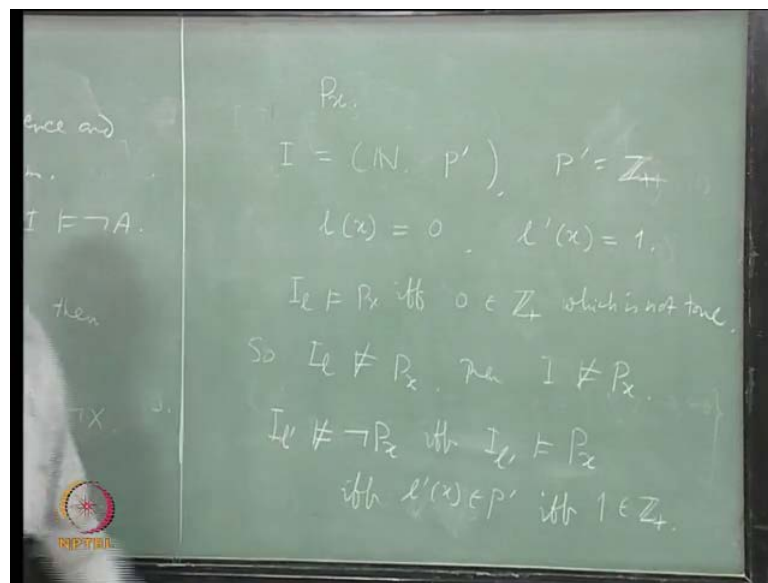 ence and
m.
I ⊨ ¬A.
then
¬X.
Px.
I = (ℕ, P'), P' = ℤ₊
l(x) = 0, l'(x) = 1.
I_l ⊨ Px iff 0 ∈ ℤ₊ which is not true.
So I_l ⊭ Px. Then I ⊭ Px.
I_l' ⊭ ¬Px iff I_l' ⊨ Px
iff l'(x) ∈ P' iff 1 ∈ ℤ₊.
NPTEL